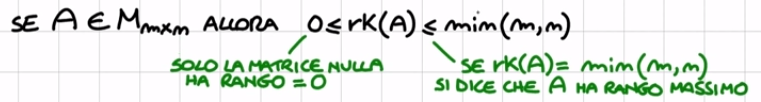 SE A ∈ M_{m×m} ALLORA 0 ≤ rk(A) ≤ min(m,m)
SOLO LA MATRICE NULLA
HA RANGO = 0
SE rk(A) = min(m,m)
SI DICE CHE A HA RANGO MASSIMO